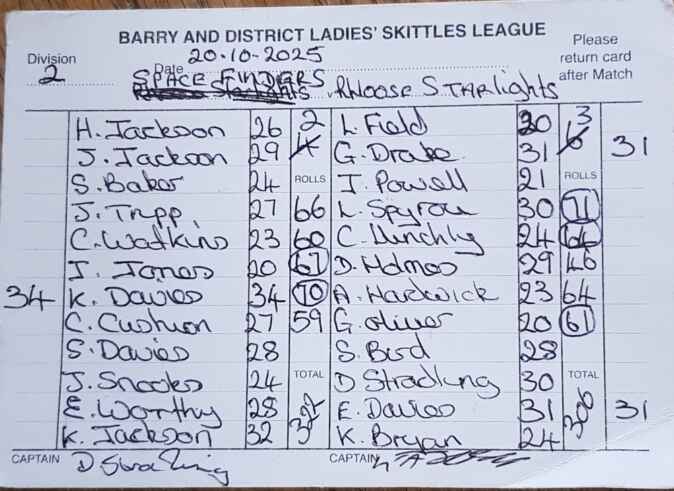 BARRY AND DISTRICT LADIES' SKITTLES LEAGUE
Division 2 Date 20-10-2025 Please return card after Match
SPACE FINDERS
v. RHOOSE STARlights
H. Jackson 26 2 L. Field 30 3
J. Jackson 29 4 G. Drake 31 6 31
S. Baker 24 ROLLS J. Powell 21 ROLLS
J. Tripp 27 66 L. Spyrou 30 71
C. Watkins 23 60 C. Dunchly 24 64
J. Jones 20 67 D. Holmes 29 46
34 K. Davies 34 70 A. Hardwick 23 64
C. Cushion 27 59 G. oliver 20 61
S. Davies 28 S. Bird 28
J. Snooks 24 TOTAL D Stradling 30 TOTAL
E. Worthy 28 322 E. Davies 31 306 31
K. Jackson 32 K. Bryan 24
CAPTAIN D Stradling CAPTAIN